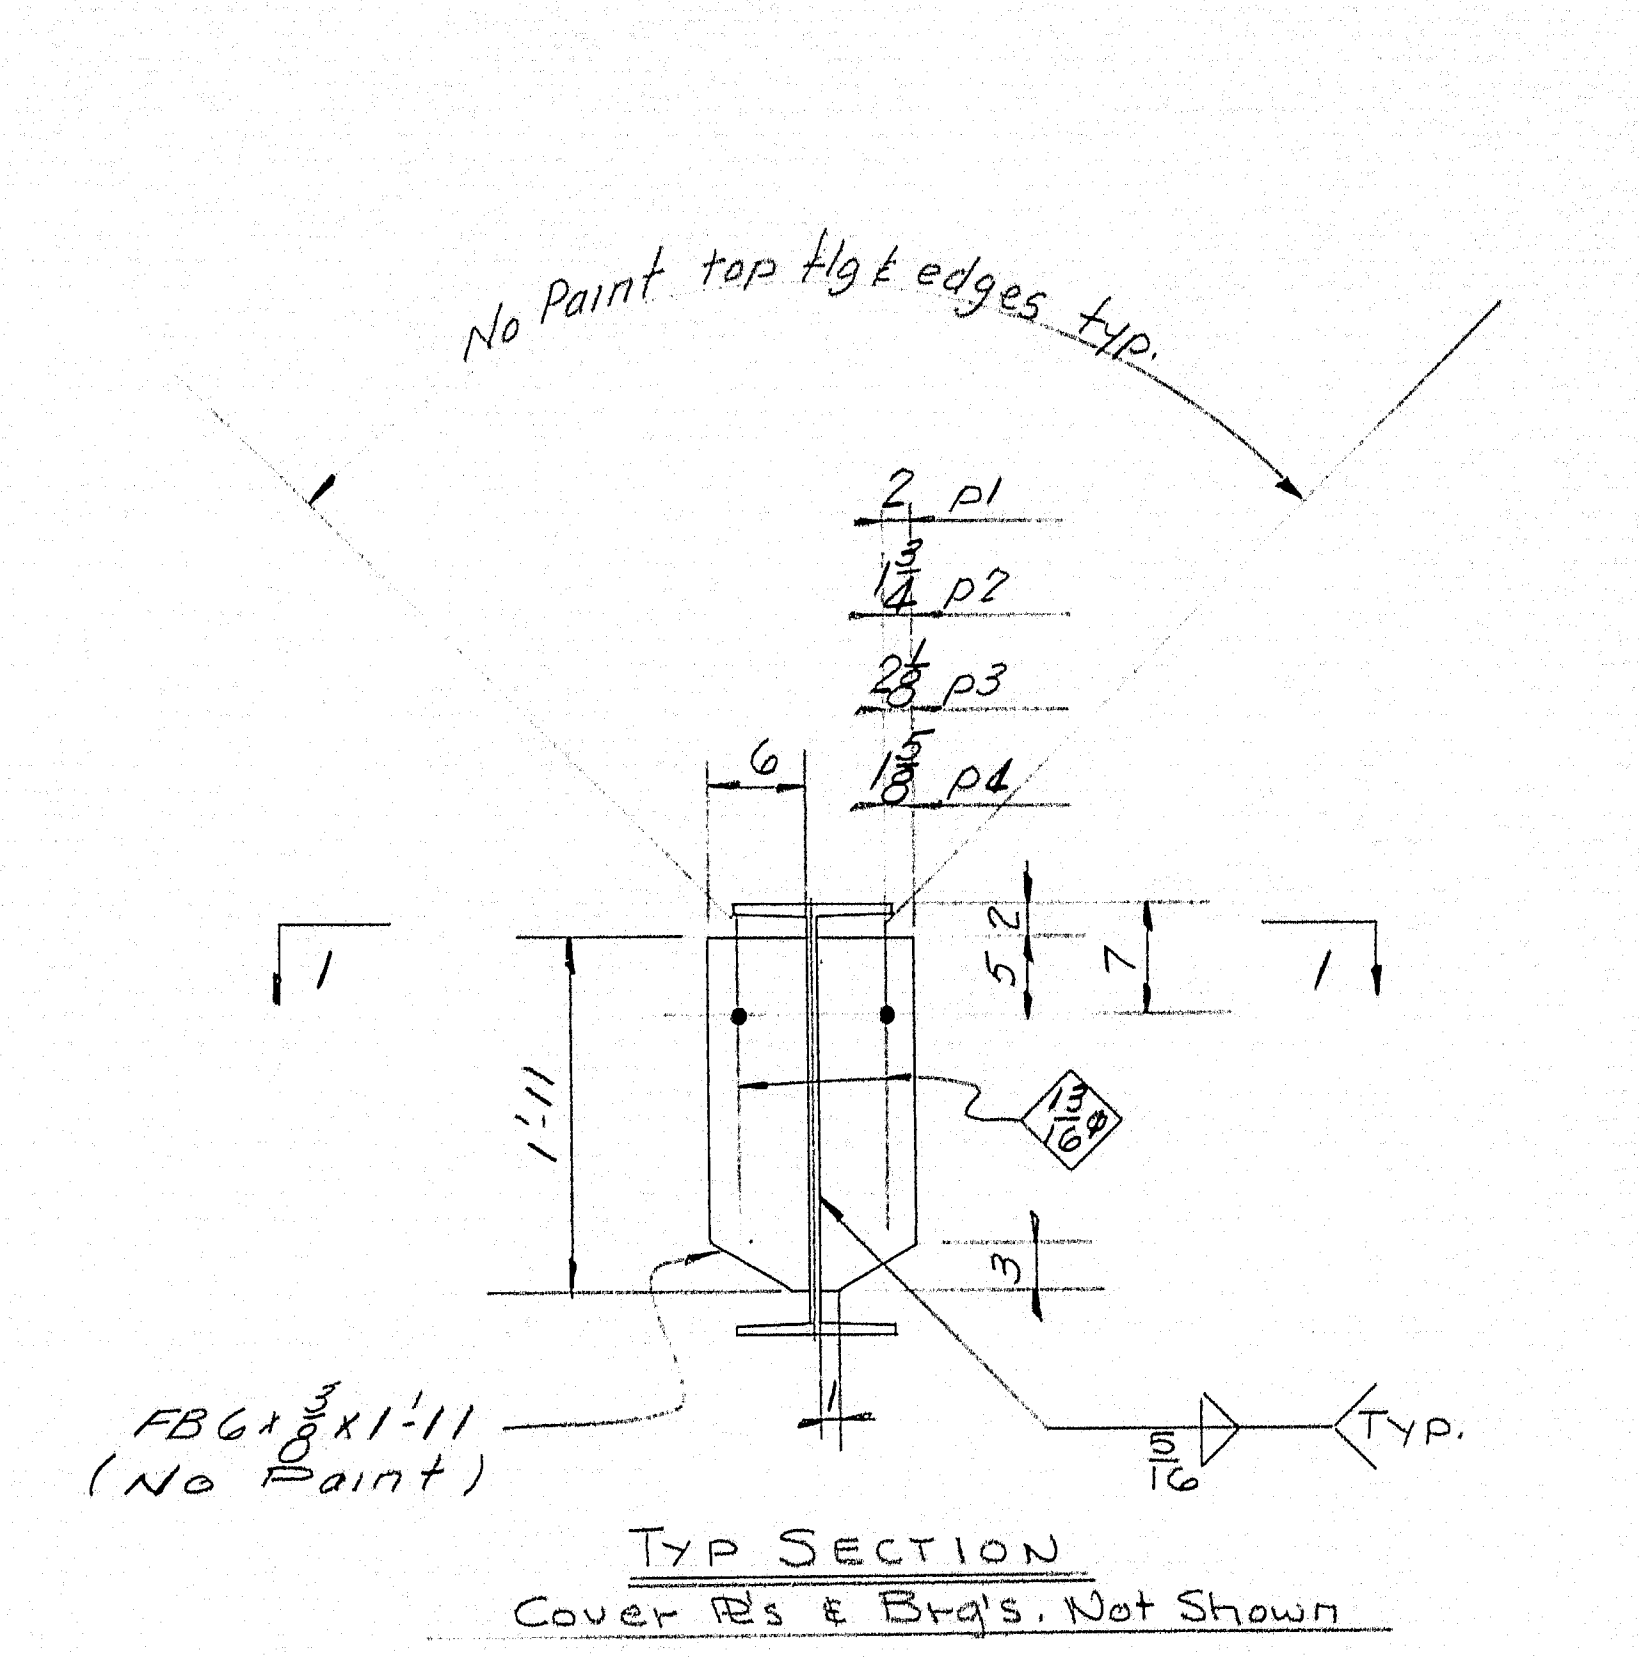 No Paint top flg & edges typ.
2 p1
1 3/4 p2
2 1/8 p3
1 5/8 p4
6
2
5
7
1
1
1'-11
13/16 ø
3
1
FB 6 x 3/8 x 1'-11
(No Paint)
5/16
Typ.
TYP SECTION
Cover PL's & Brg's. Not Shown